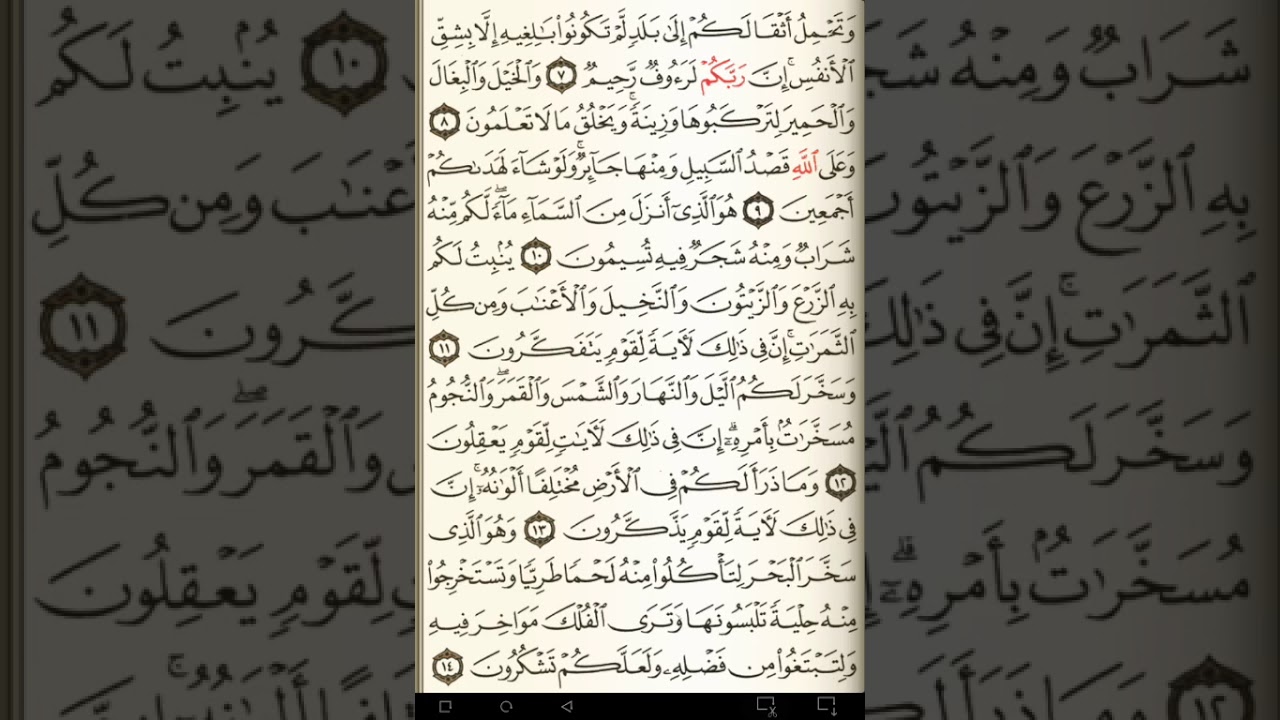 وَتَحْمِلُ أَثْقَالَكُمْ إِلَىٰ بَلَدٍ لَّمْ تَكُونُوا۟ بَٰلِغِيهِ إِلَّا بِشِقِّ
ٱلْأَنفُسِ ۚ إِنَّ رَبَّكُمْ لَرَءُوفٌ رَّحِيمٌ ٧ وَٱلْخَيْلَ وَٱلْبِغَالَ
وَٱلْحَمِيرَ لِتَرْكَبُوهَا وَزِينَةً ۚ وَيَخْلُقُ مَا لَا تَعْلَمُونَ ٨
وَعَلَى ٱللَّهِ قَصْدُ ٱلسَّبِيلِ وَمِنْهَا جَآئِرٌ ۚ وَلَوْ شَآءَ لَهَدَىٰكُمْ
أَجْمَعِينَ ٩ هُوَ ٱلَّذِىٓ أَنزَلَ مِنَ ٱلسَّمَآءِ مَآءً ۖ لَّكُم مِّنْهُ
شَرَابٌ وَمِنْهُ شَجَرٌ فِيهِ تُسِيمُونَ ١٠ يُنۢبِتُ لَكُم
بِهِ ٱلزَّرْعَ وَٱلزَّيْتُونَ وَٱلنَّخِيلَ وَٱلْأَعْنَٰبَ وَمِن كُلِّ
ٱلثَّمَرَٰتِ ۗ إِنَّ فِى ذَٰلِكَ لَءَايَةً لِّقَوْمٍ يَتَفَكَّرُونَ ١١
وَسَخَّرَ لَكُمُ ٱلَّيْلَ وَٱلنَّهَارَ وَٱلشَّمْسَ وَٱلْقَمَرَ ۖ وَٱلنُّجُومُ
مُسَخَّرَٰتٌۢ بِأَمْرِهِۦٓ ۗ إِنَّ فِى ذَٰلِكَ لَءَايَٰتٍ لِّقَوْمٍ يَعْقِلُونَ
١٢ وَمَا ذَرَأَ لَكُمْ فِى ٱلْأَرْضِ مُخْتَلِفًا أَلْوَٰنُهُۥٓ ۗ إِنَّ
فِى ذَٰلِكَ لَءَايَةً لِّقَوْمٍ يَذَّكَّرُونَ ١٣ وَهُوَ ٱلَّذِى
سَخَّرَ ٱلْبَحْرَ لِتَأْكُلُوا۟ مِنْهُ لَحْمًا طَرِيًّا وَتَسْتَخْرِجُوا۟
مِنْهُ حِلْيَةً تَلْبَسُونَهَا وَتَرَى ٱلْفُلْكَ مَوَاخِرَ فِيهِ
وَلِتَبْتَغُوا۟ مِن فَضْلِهِۦ وَلَعَلَّكُمْ تَشْكُرُونَ ١٤